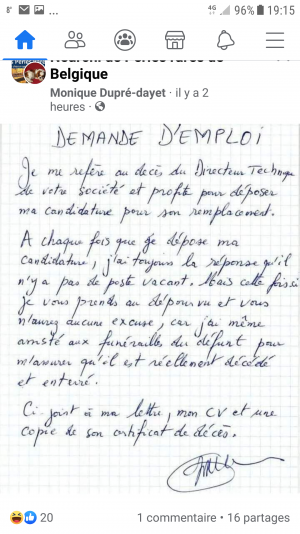 8°
4G
96%
19:15
Belgique
Monique Dupré-dayet · il y a 2
heures ·
DEMANDE D'EMPLOI
Je me refère au decès du Directeur Technique
de votre société et profite pour déposer
ma candidature pour son remplacement.
A chaque fois que je dépose ma
candidature, j'ai toujours la reponse qu'il
n'y a pas de poste vacant. Mais cette fois ci
je vous prends au dépourvu et vous
n'aurez aucune excuse, car j'ai même
assisté aux funérailles du défunt pour
m'assurer qu'il est réellement décédé
et enterré.
Ci-joint à ma lettre, mon CV et une
copie de son certificat de décès.
20
1 commentaire • 16 partages